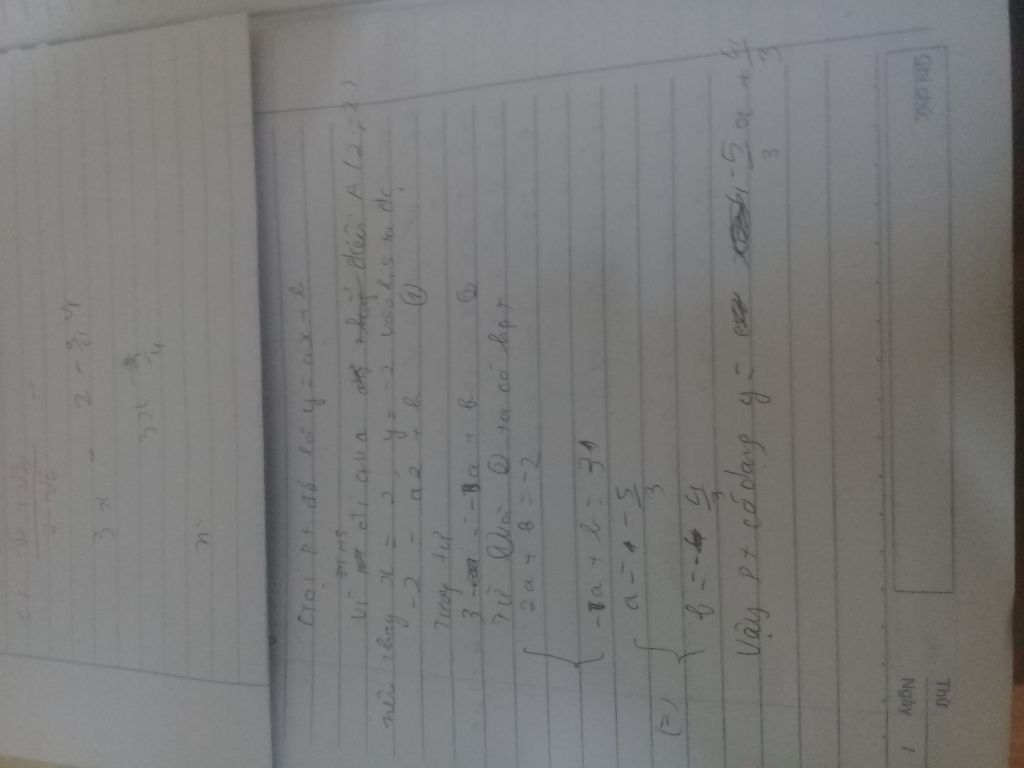 3x - 2 - 3,4
3x 3/4
x
Gọi pt đđ là y = ax + b
Vì ptđđ đi qua điểm A (2,-2)
nên thay x = 2, y = -2 vào h,s ta dc:
-2 = a2 + b (1)
Tương tự
3 = -1a + b (2)
Từ (1) và (2) ta có hpt
{ 2a + b = -2
-1a + b = 3
(=) { a = -5/3
b = 4/3
Vậy pt có dạng y = -5/3 a + 4/3
Ghi chú:
Thứ
Ngày